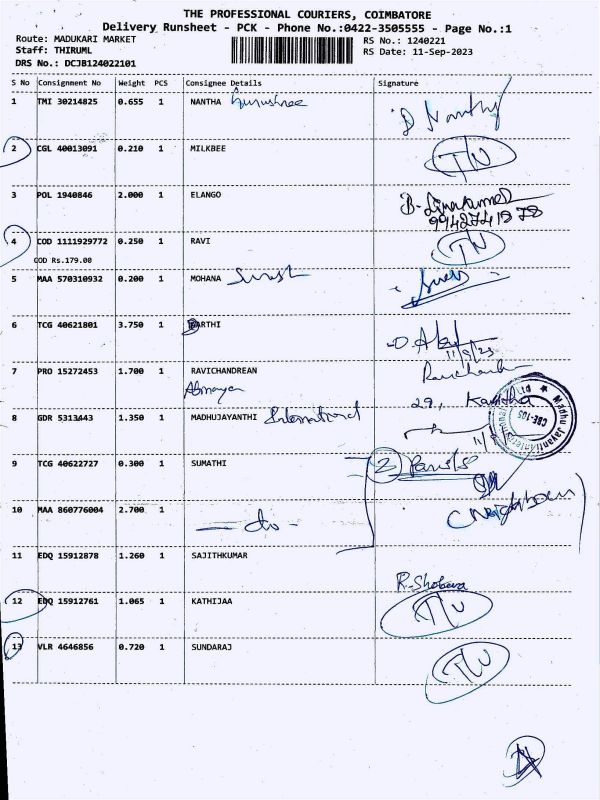 THE PROFESSIONAL COURIERS, COIMBATORE
Delivery Runsheet - PCK - Phone No.:0422-3505555 - Page No.:1
Route: MADUKARI MARKET RS No.: 1240221
Staff: THIRUML RS Date: 11-Sep-2023
DRS No.: DCJB124022101
S No Consignment No Weight PCS Consignee Details Signature
1 TMI 30214825 0.655 1 NANTHA
D Nanthy
2 CGL 40013091 0.210 1 MILKBEE
3 POL 1940846 2.000 1 ELANGO
9942741878
4 COD 1111929772 0.250 1 RAVI
COD Rs.179.00
5 MAA 570310932 0.200 1 MOHANA
6 TCG 40621801 3.750 1 BARTHI
11/9/23
7 PRO 15272453 1.700 1 RAVICHANDREAN
29,
8 GDR 5313443 1.350 1 MADHUJAYANTHI International
Madhu Jayanti International
CBE-105
9 TCG 40622727 0.300 1 SUMATHI 2
10 MAA 860776004 2.700 1 - do -
11 EDQ 15912878 1.260 1 SAJITHKUMAR
R. Shobana
12 EDQ 15912761 1.065 1 KATHIJAA
13 VLR 4646856 0.720 1 SUNDARAJ